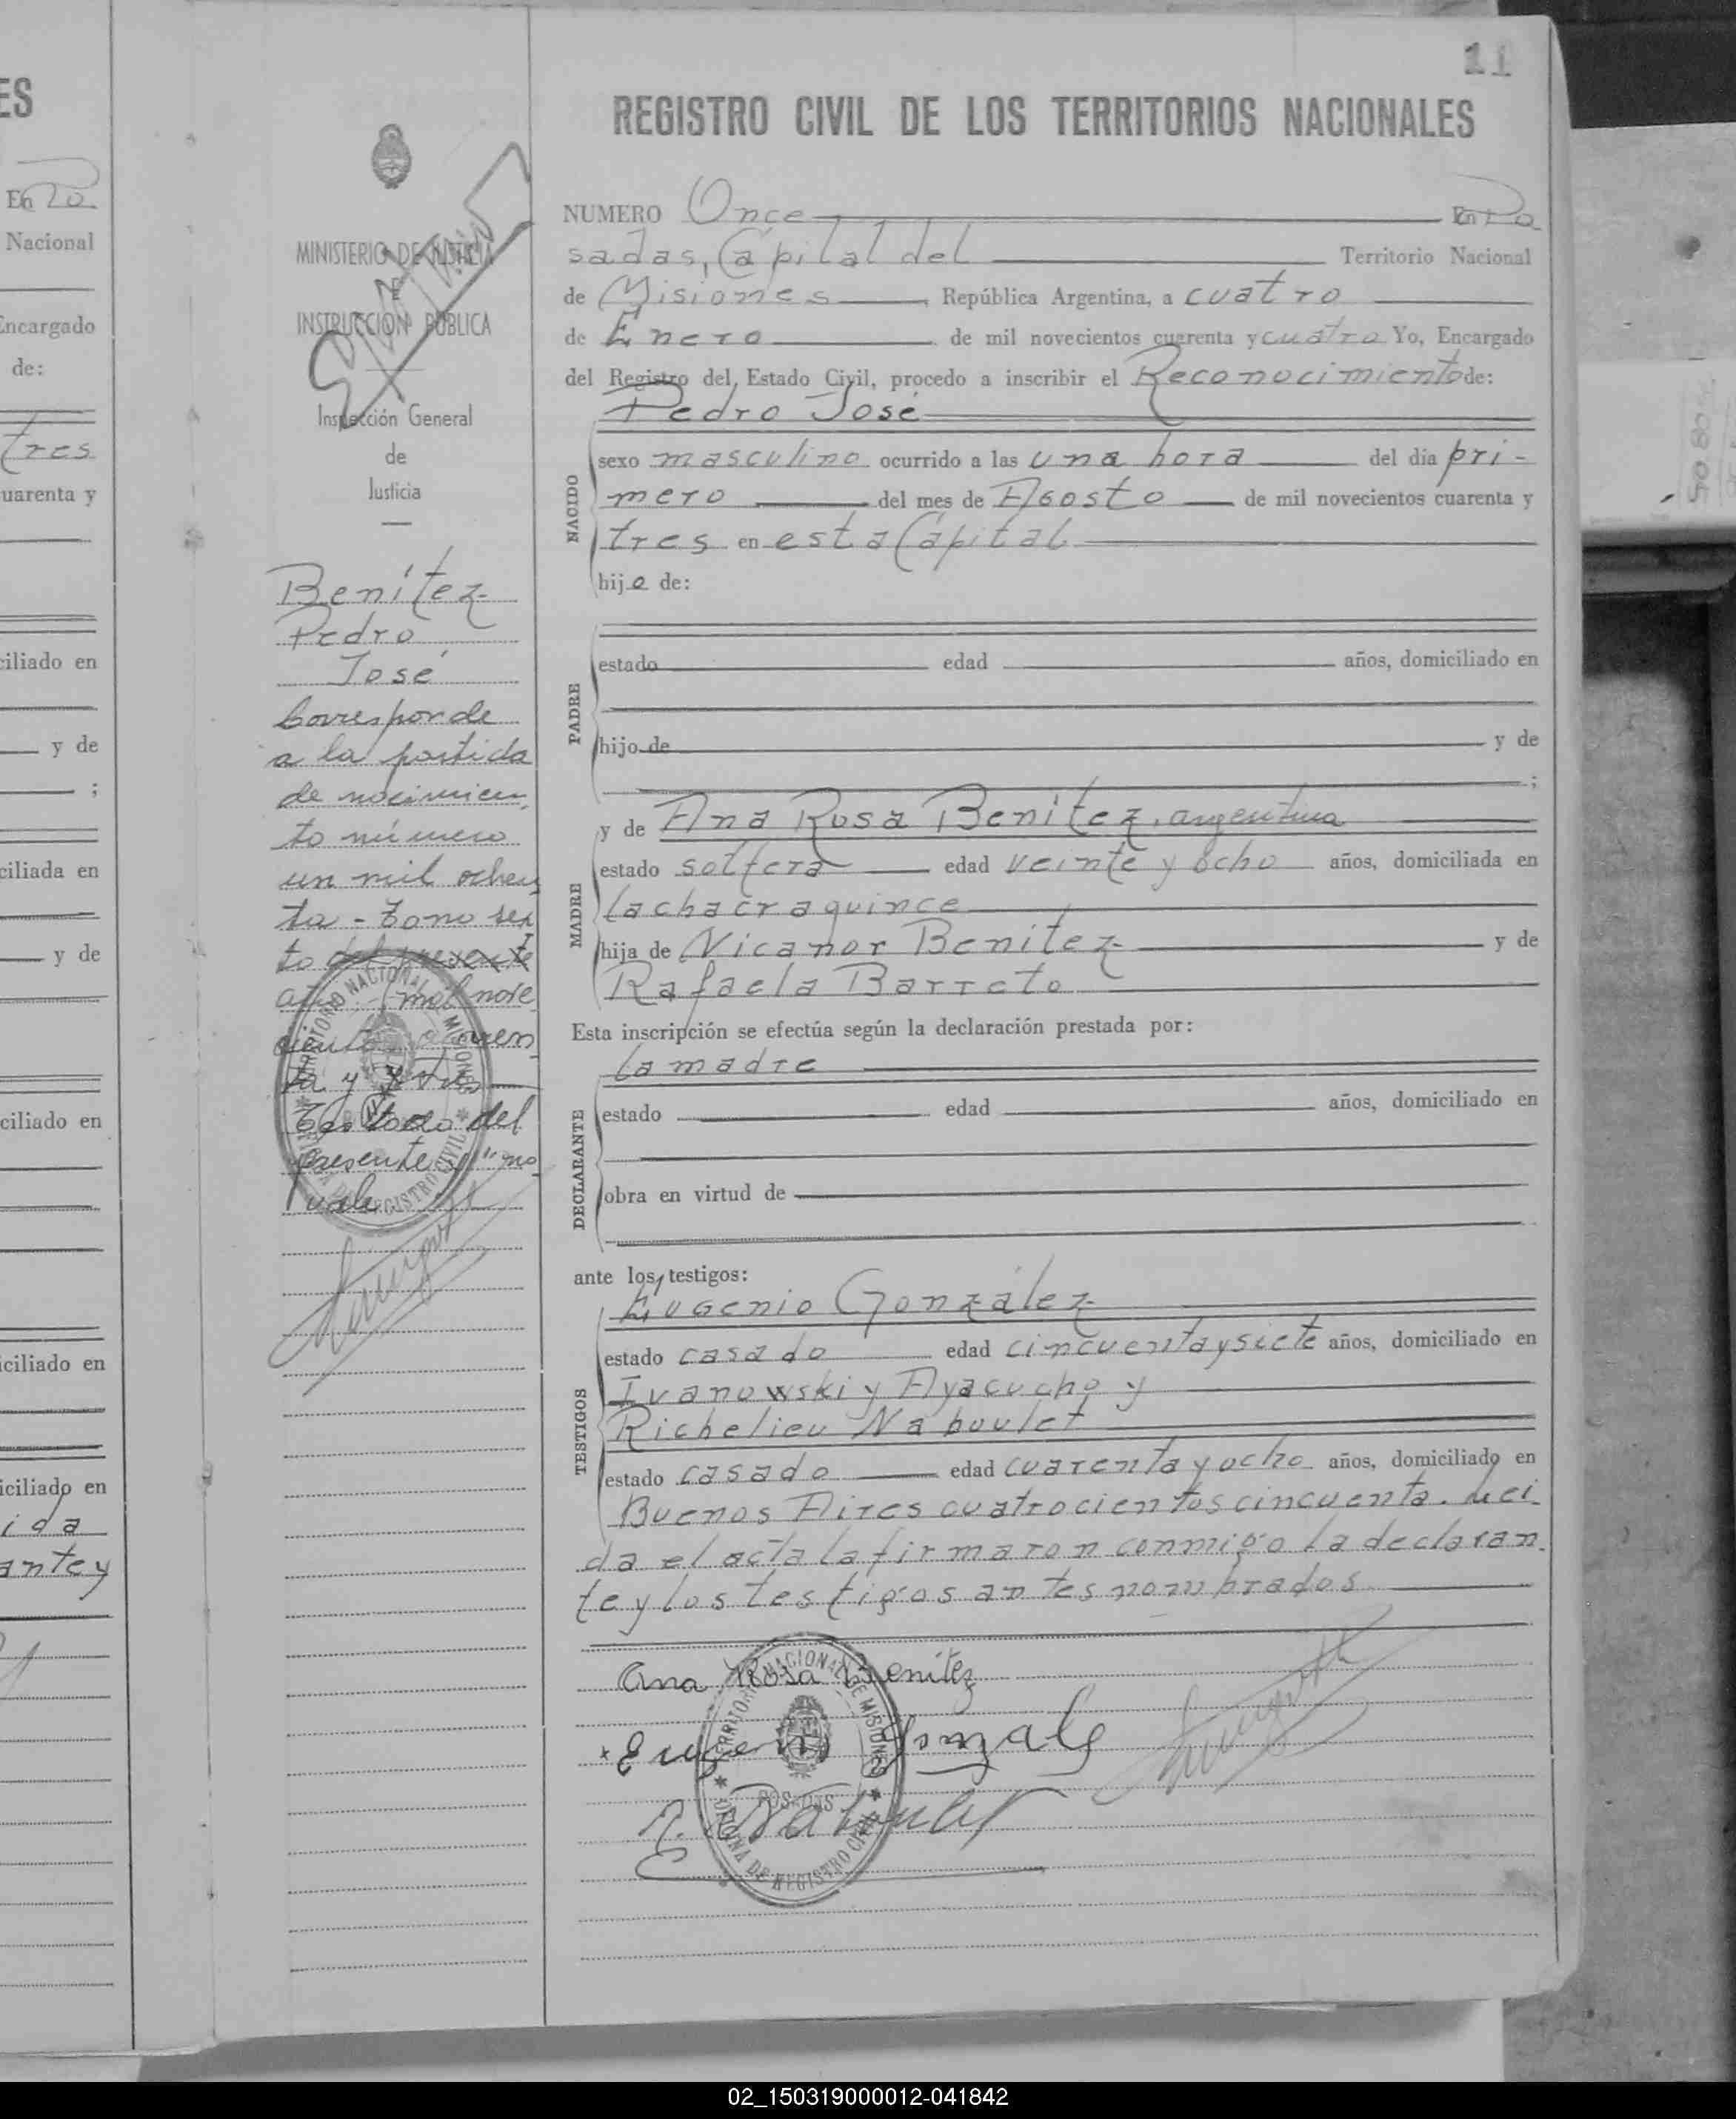 ES
En Po
Nacional
Encargado
de:
tres
cuarenta y
ciliado en
y de
;
ciliada en
y de
ciliado en
iciliado en
iciliado en
ida
antey
MINISTERIO DE JUSTICIA
E
INSTRUCCION PUBLICA
Inspección General
de
Justicia
Benítez
Pedro
José
Corresponde
a la partida
de nacimien
to número
un mil ochen
ta - Tomo sex
to del presente
año - mil nove
cientos cuaren
ta y tres
Testado del
presente "no
vale
11
REGISTRO CIVIL DE LOS TERRITORIOS NACIONALES
NUMERO Once En Po
sadas, Capital del Territorio Nacional
de Misiones, República Argentina, a cuatro
de Enero de mil novecientos cuarenta y cuatro Yo, Encargado
del Registro del Estado Civil, procedo a inscribir el Reconocimiento de:
Pedro José
NACIDO
sexo masculino ocurrido a las una hora del día pri-
mero del mes de Agosto de mil novecientos cuarenta y
tres en esta Capital
hijo de:
PADRE
estado edad años, domiciliado en
hijo de y de
;
MADRE
y de Ana Rosa Benítez, argentina
estado soltera edad veinte y ocho años, domiciliada en
la chacra quince
hija de Nicanor Benítez y de
Rafaela Barreto
Esta inscripción se efectúa según la declaración prestada por:
DECLARANTE
la madre
estado edad años, domiciliado en
obra en virtud de
ante los testigos:
TESTIGOS
Eugenio González
estado casado edad cincuenta y siete años, domiciliado en
Ivanowski y Ayacucho y
Richelieu Naboulet
estado casado edad cuarenta y ocho años, domiciliado en
Buenos Aires cuatrocientos cincuenta. Leí-
da el acta la firmaron conmigo la declaran-
te y los testigos antes nombrados
Ana Rosa Benítez
Eugenio Gonzalez
R. Naboulet
TERRITORIO NACIONAL DE MISIONES
POSADAS
OFICINA DE REGISTRO CIVIL
02_150319000012-041842